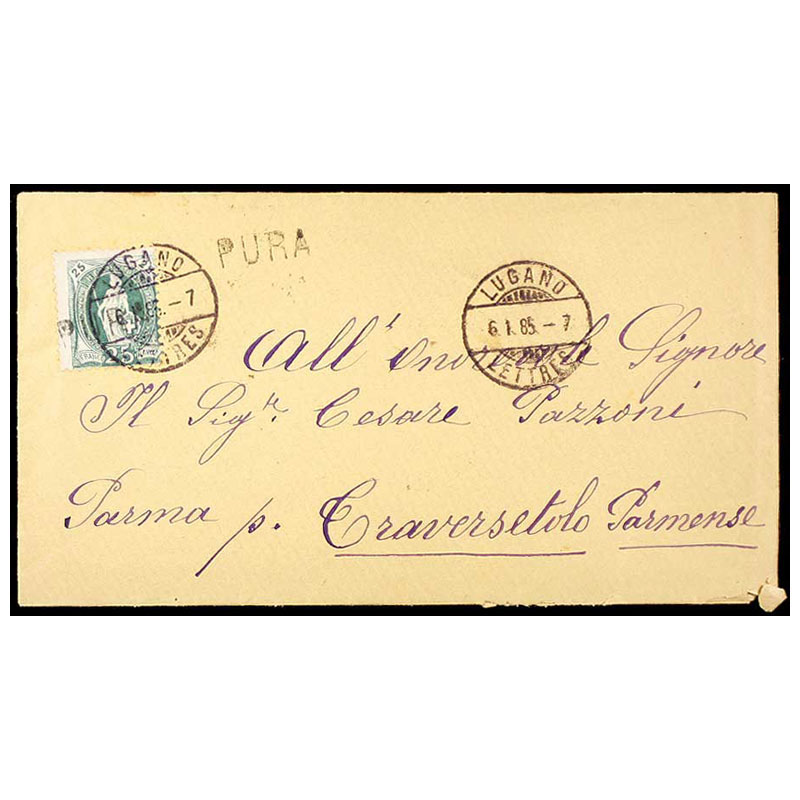 25
PURA
LUGANO
6.1.85.–7
LETTRES
LUGANO
6.1.85.–7
LETTRES
All' onorevole Signore
Il Sigr. Cesare Pazzoni
Parma p. Traversetolo Parmense